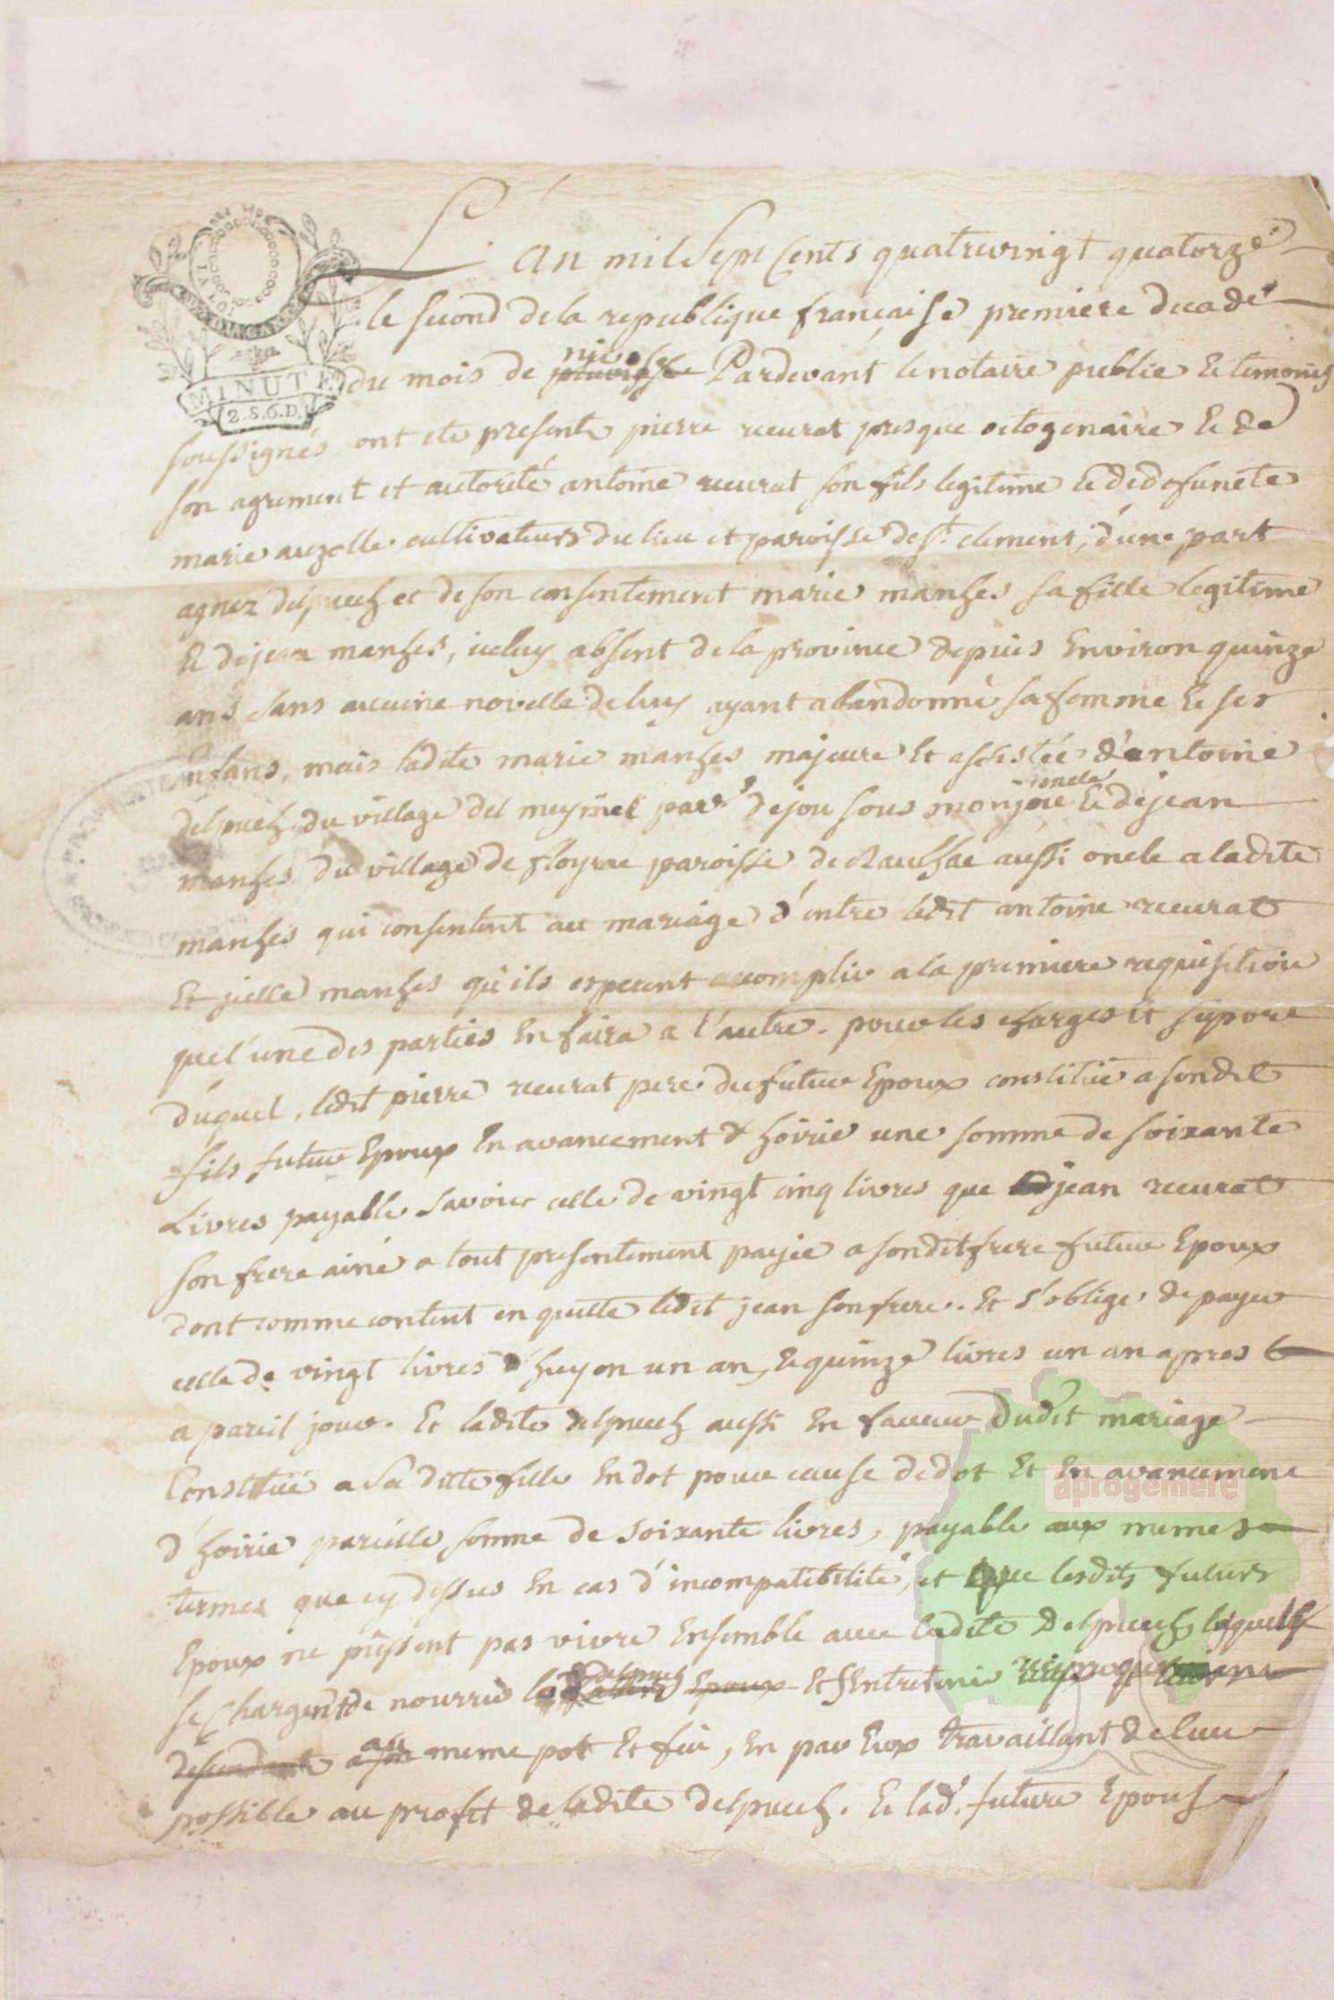 L'an mil sept cents quatrevingt quatorze
le second de la republique française premiere decade
du mois de nivose pluviose Pardevant le notaire public Et temoins
MINUTE
2.S.6.D.
soussignés ont ete presents pierre reeurat presque octogenaire Et de
son agrement et autorité antoine reeurat son fils legitime Et de defunete
marie auzolle cultivateurs du lieu et paroisse de st clement, d'une part
agnez delpuech et de son consentement marie manhes sa fille legitime
Et de jean manhes, iceluy absent de la province depuis Environ quinze
ans sans aucune novelle de luy ayant abandonné sa femme Et ses
Enfans, mais ladite marie manhes majeure Et assistée d'antoine
delpuech du village del meyniel parr. de jou sous monjou oncle Et de jean
manhes du village de floyrac paroisse de Raulhac aussi oncle a ladite
manhes qui consentent au mariage d'entre ledit antoine reeurat
Et jcelle manhes qu'ils esperent accomplir a la premiere requisition
que l'une des parties En faira a l'autre. pour les charges Et suport
duquel, ledit pierre reeurat pere du futur Epoux constitue a sondit
fils futur Epoux En avancement d'hoirie une somme de soixante
Livres payable savoir celle de vingt cinq livres que jean reeurat
son frere ainé a tout presentement payée a sondit frere futur Epoux
dont comme content en quitte ledit jean son frere. Et s'oblige de payer
celle de vingt livres d'huy en un an, Et quinze livres un an apres
a pareil jour. Et ladite delpuech aussi En faveur dudit mariage
Constitue a sa dite fille En dot pour cause de dot Et En avancement
d'hoirie pareille somme de soixante livres, payable aux memes
termes que cy dessus En cas d'incompatibilité, et que lesdits futurs
Epoux ne puissent pas vivre Ensemble avec ladite delpuech, laquelle
se chargent de nourrir la delpuech Epoux Et l'Entretenir
au meme pot Et feu, En par Eux travaillant de leur
possible au profit de ladite delpuech. Et lad. future Epouse
aprogemere